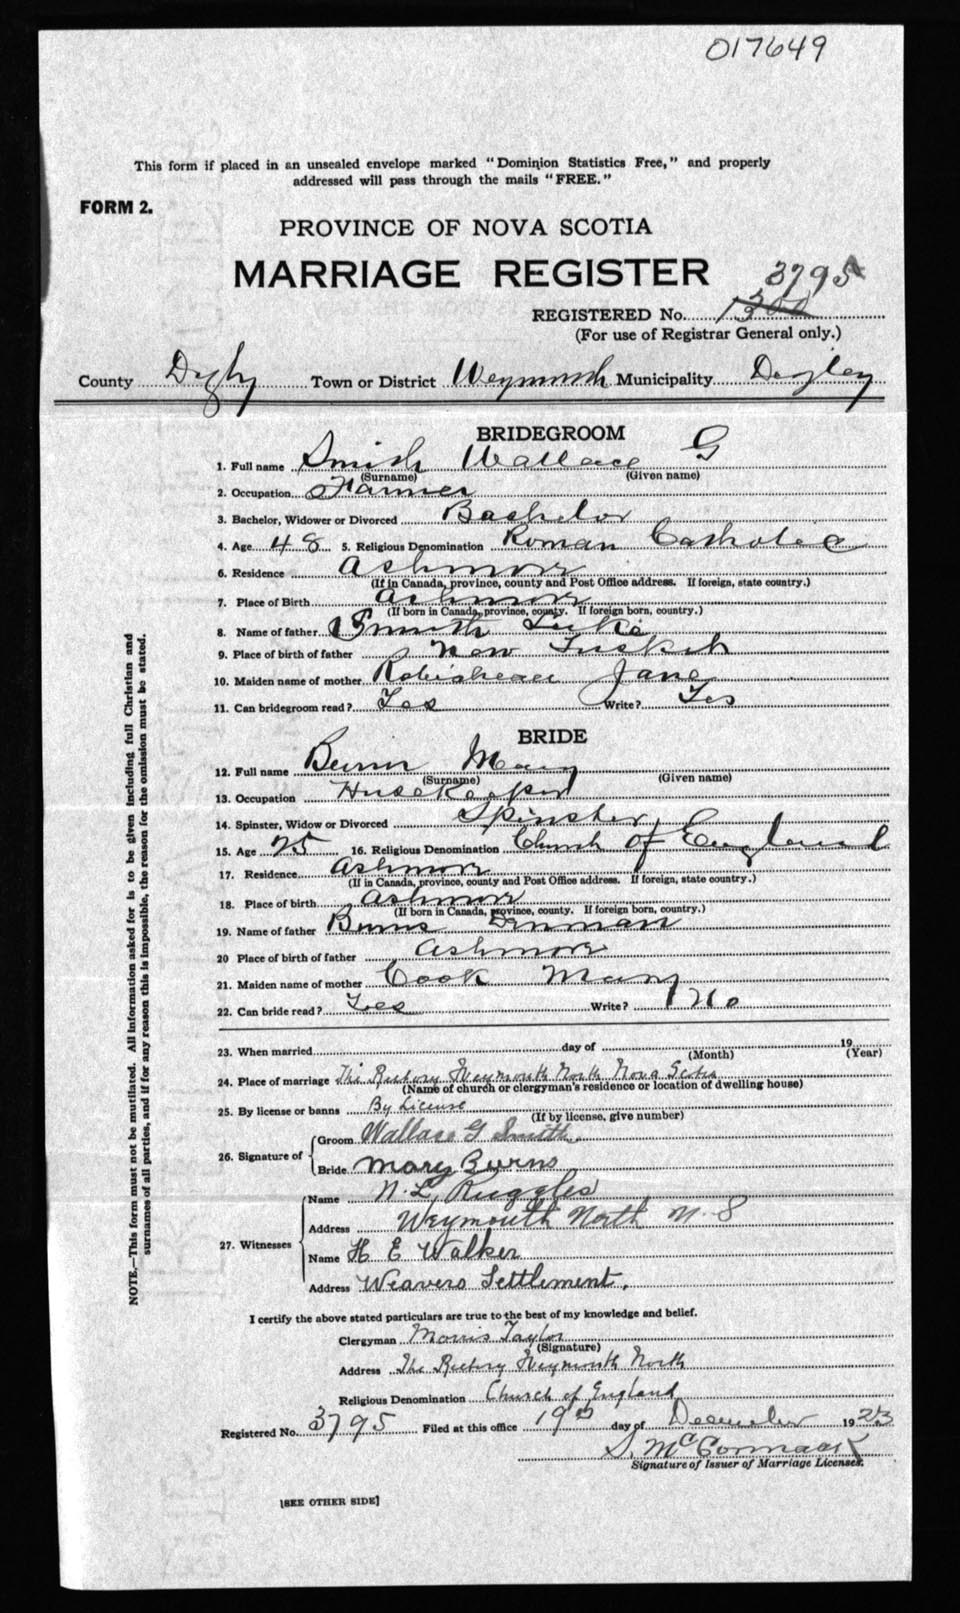 017649
This form if placed in an unsealed envelope marked "Dominion Statistics Free," and properly
addressed will pass through the mails "FREE."
FORM 2.
PROVINCE OF NOVA SCOTIA
MARRIAGE REGISTER
3795
REGISTERED No. 1300
(For use of Registrar General only.)
County Digby Town or District Weymouth Municipality Digby
BRIDEGROOM
1. Full name Smith Wallace G
(Surname) (Given name)
2. Occupation Farmer
3. Bachelor, Widower or Divorced Bachelor
4. Age 48 5. Religious Denomination Roman Catholic
6. Residence Ashmore
(If in Canada, province, county and Post Office address. If foreign, state country.)
7. Place of Birth Ashmore
(If born in Canada, province, county. If foreign born, country.)
8. Name of father Smith Luke
9. Place of birth of father New Tusket
10. Maiden name of mother Robisheau Jane
11. Can bridegroom read? Yes Write? Yes
BRIDE
12. Full name Burns Mary
(Surname) (Given name)
13. Occupation Housekeeper
14. Spinster, Widow or Divorced Spinster
15. Age 25 16. Religious Denomination Church of England
17. Residence Ashmore
(If in Canada, province, county and Post Office address. If foreign, state country.)
18. Place of birth Ashmore
(If born in Canada, province, county. If foreign born, country.)
19. Name of father Burns Denman
20 Place of birth of father Ashmore
21. Maiden name of mother Cook Mary
22. Can bride read? Yes Write? No
23. When married day of 19
(Month) (Year)
24. Place of marriage The Rectory Weymouth North Nova Scotia
(Name of church or clergyman's residence or location of dwelling house)
25. By license or banns By License
(If by license, give number)
26. Signature of
Groom Wallace G Smith.
Bride Mary Burns
27. Witnesses
Name N. L. Ruggles
Address Weymouth North N. S
Name H E Walker
Address Weavers Settlement.
I certify the above stated particulars are true to the best of my knowledge and belief.
Clergyman Morris Taylor
(Signature)
Address The Rectory Weymouth North
Religious Denomination Church of England
Registered No. 3795 Filed at this office 19th day of December 1923
S. McCormack
Signature of Issuer of Marriage Licenses.
[SEE OTHER SIDE]
NOTE.—This form must not be mutilated. All information asked for is to be given including full Christian and
surnames of all parties, and if for any reason this is impossible, the reason for the omission must be stated.